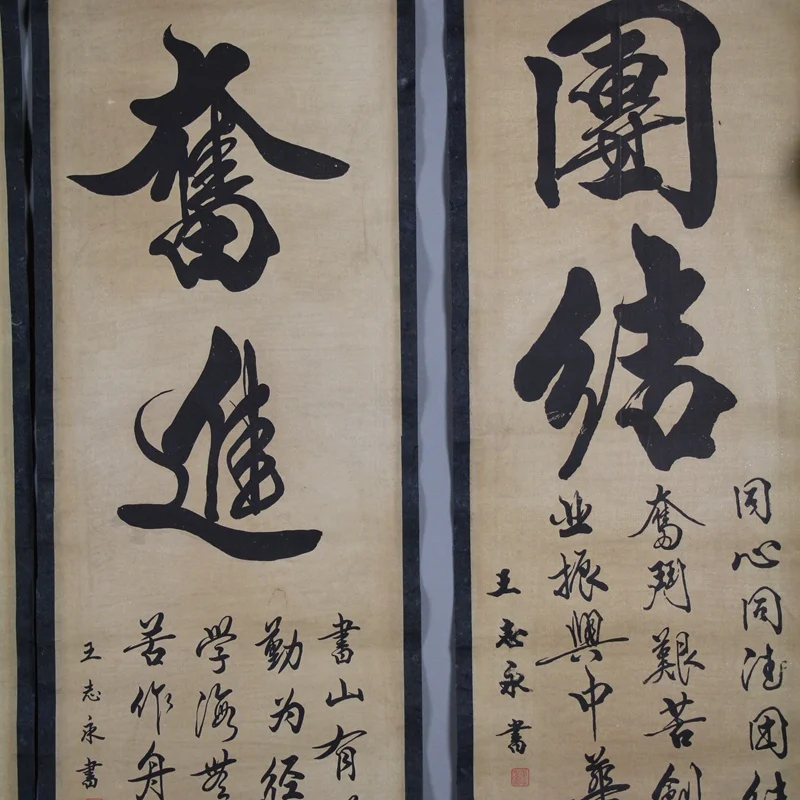 團結
同心同德团
奮鬥艱苦創
业振興中華
王志永書
奮進
書山有
勤为径
学海無
苦作舟
王志永書